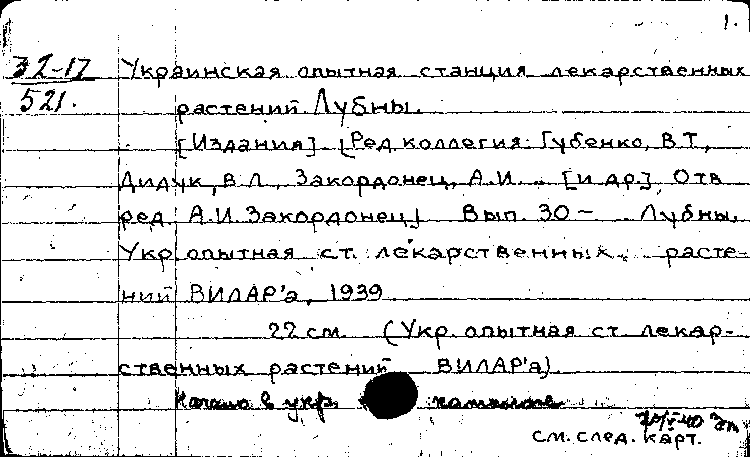 1.
32-17 Украинская опытная станция лекарственных
521. растений. Лубны.
[Издания]. [Ред коллегия: Губенко, В.Т,
Дидук, В Л, Закордонец, А.И... [и др.] Отв
ред. А.И. Закордонец] Вып. 30 – Лубны.
Укр опытная ст. лекарственных расте-
ний ВИЛАР'а, 1939.
22 см. (Укр. опытная ст лекар-
ственных растений ВИЛАР'а)
Начало в укр.
см. след. карт.